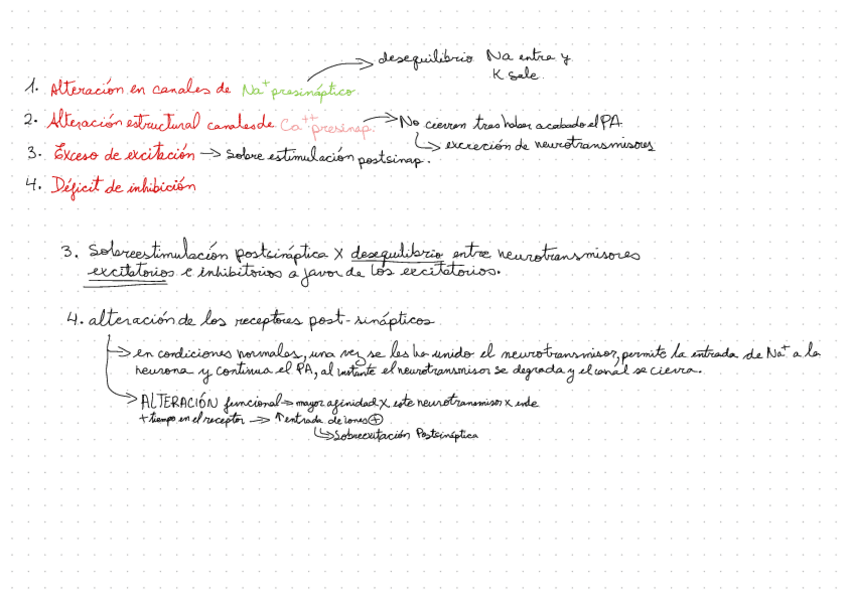 desequilibrio Na entra y
K sale.
1. Alteración en canales de Na+ presináptico.
2. Alteración estructural canales de Ca++ presinap. → No cierran tras haber acabado el PA.
↳ excreción de neurotransmisores
3. Exceso de excitación → Sobre estimulación postsinap.
4. Déficit de inhibición
3. Sobreestimulación postsináptica X desequilibrio entre neurotransmisores
excitatorios e inhibitorios a favor de los excitatorios.
4. alteración de los receptores post-sinápticos
→ en condiciones normales, una vez se les ha unido el neurotransmisor, permite la entrada de Na+ a la
neurona y continua el PA, al instante el neurotransmisor se degrada y el canal se cierra.
→ ALTERACIÓN funcional → mayor afinidad X este neurotransmisor x ende
+ tiempo en el receptor → ↑ entrada de iones ⊕
↳ Sobreexcitación Postsináptica